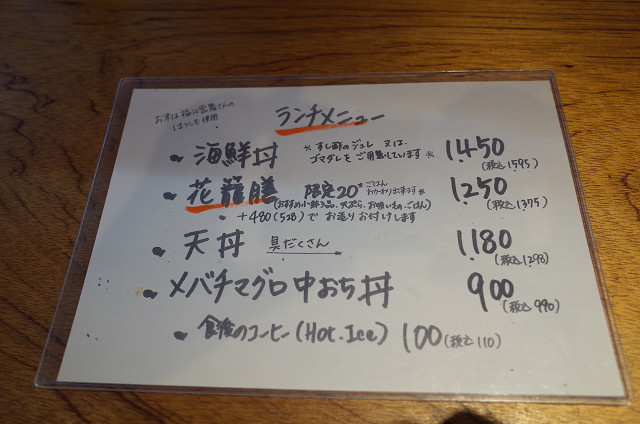 お米は福谷営農さんの
はつしもを使用
ランチメニュー
• 海鮮丼 ※すし酢のジュレ 又は、 1,450
ゴマダレをご用意しています※ (税込1595)
• 花籠膳 限定20食 ごはん 1,250
おかわり出来ます※ (税込1375)
(おすすめ小鉢3品、天ぷら、お吸いもの、ごはん)
• +480(528)で お造りお付けします
• 天丼 具だくさん 1,180
(税込1298)
• メバチマグロ中おち丼 900
(税込990)
• 食後のコーヒー(Hot.Ice) 100(税込110)